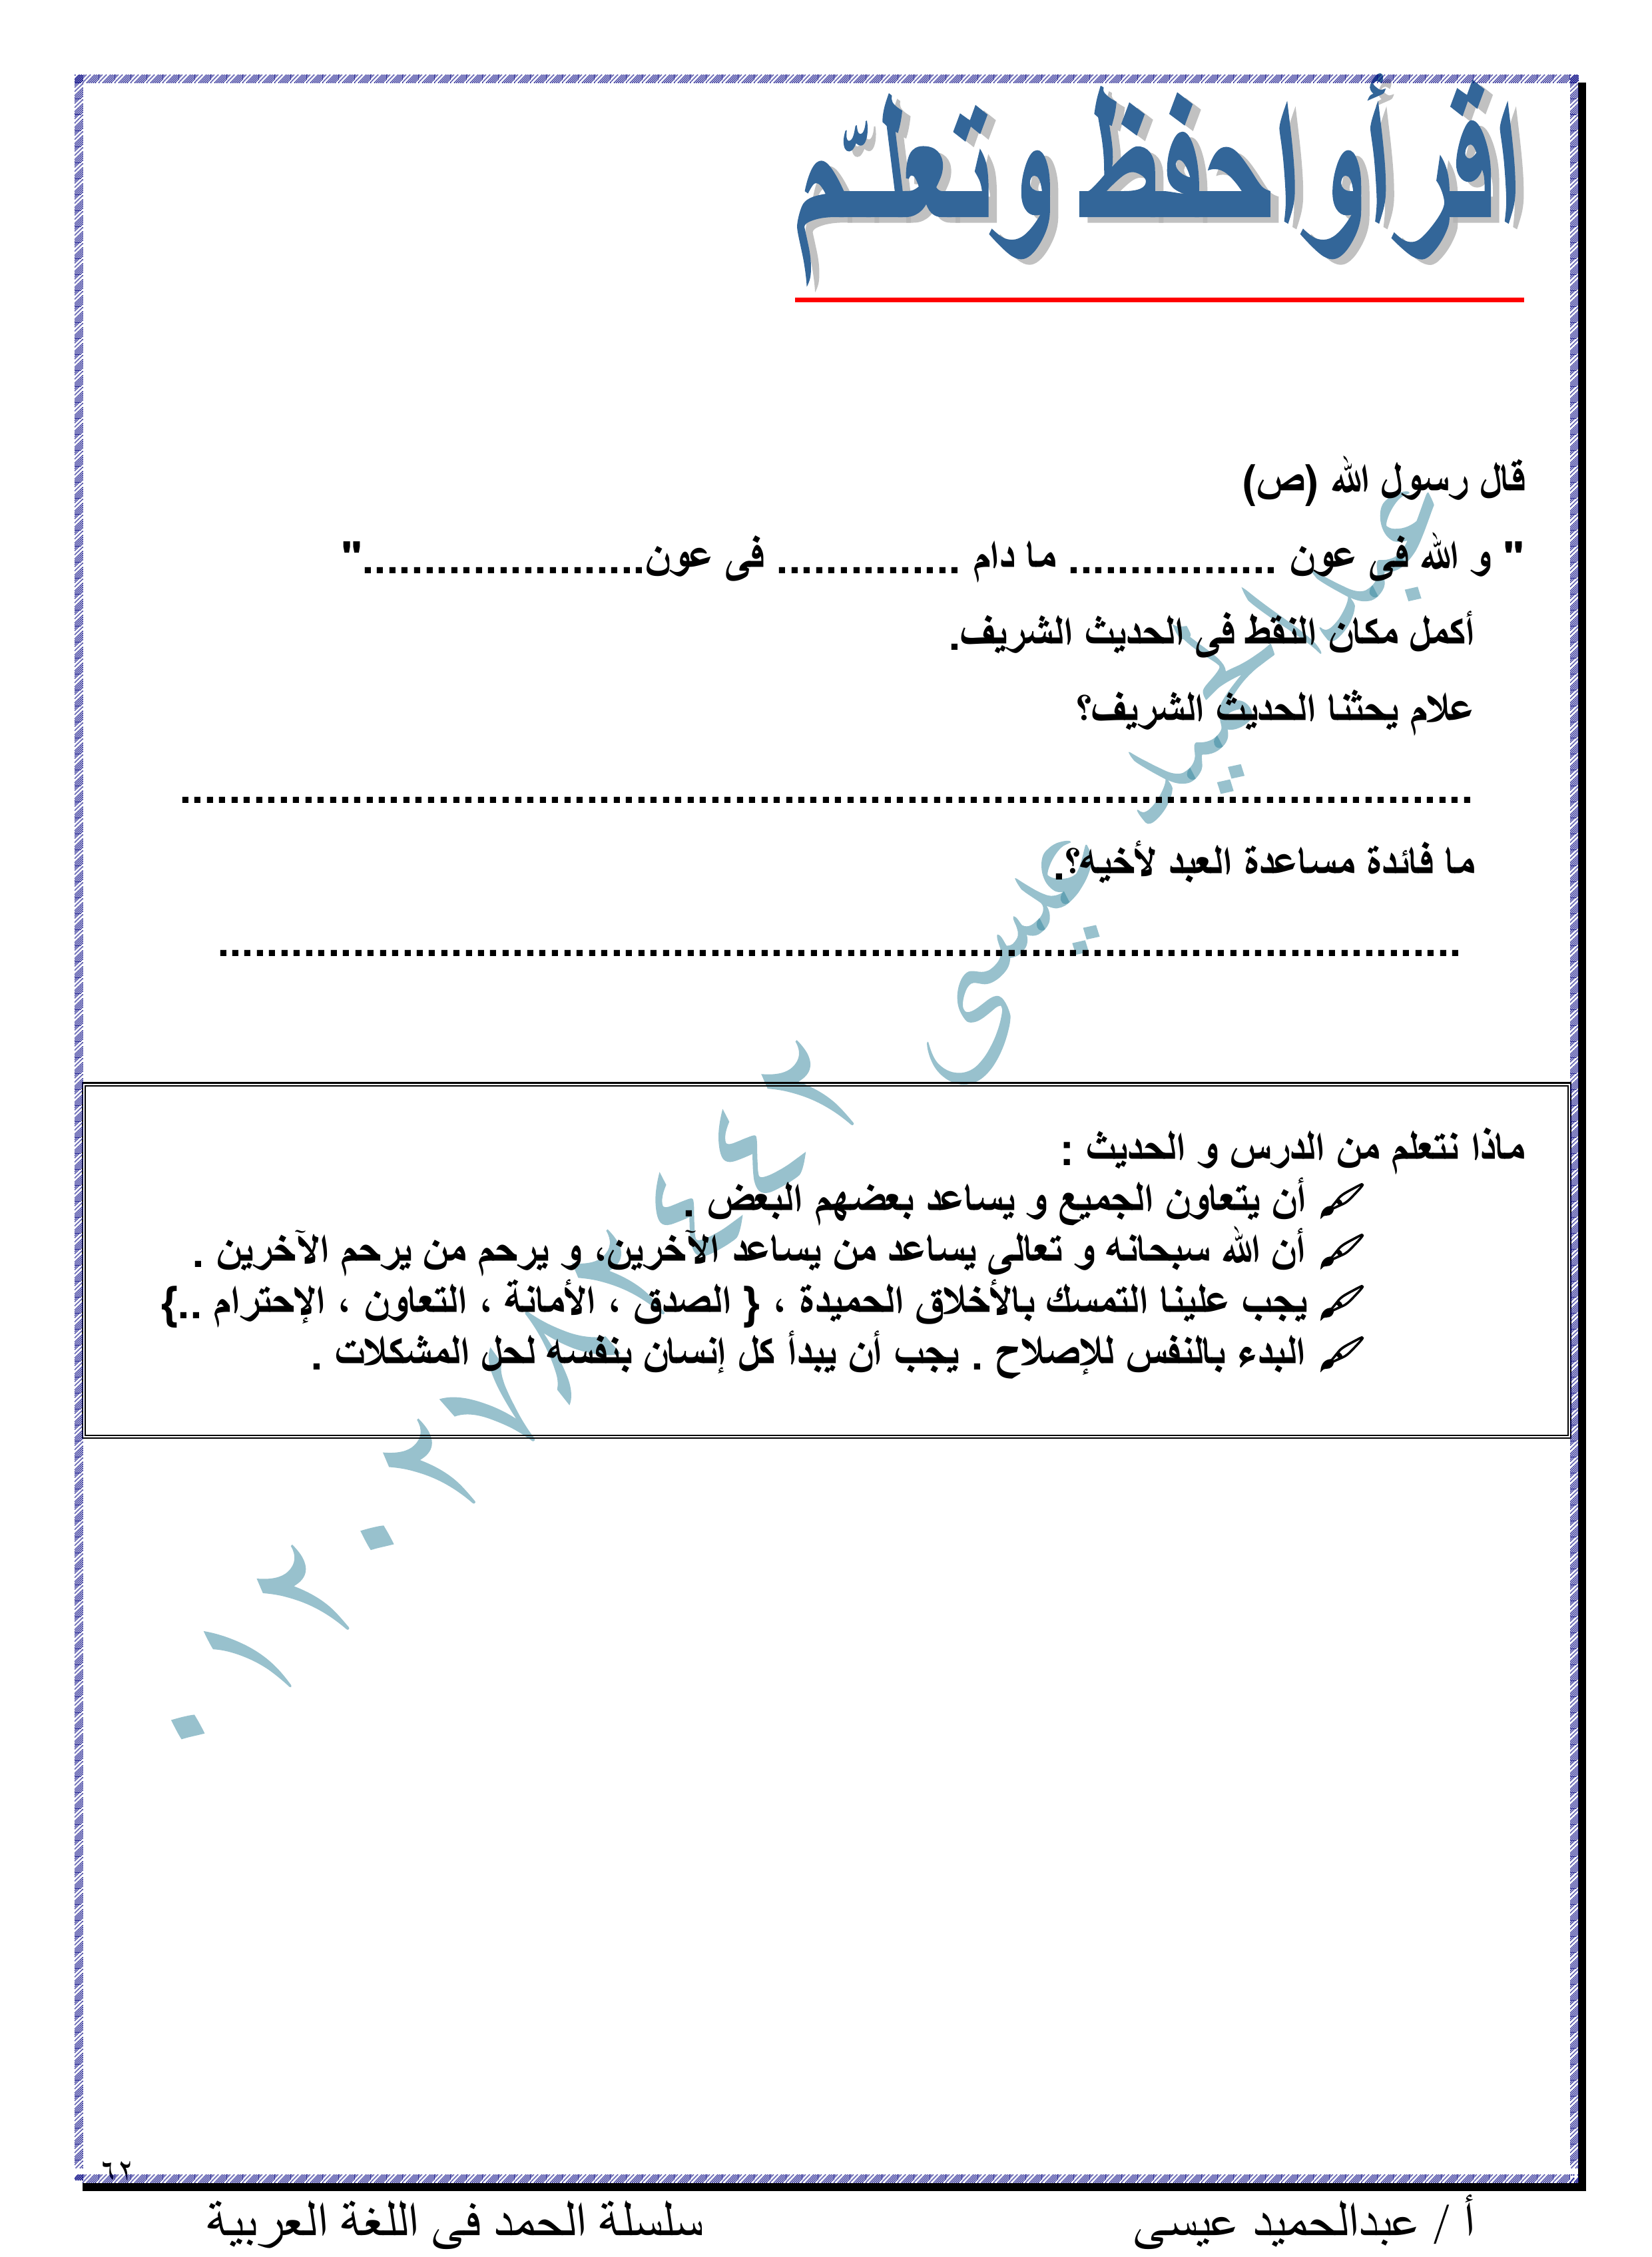 اقرأ واحفظ وتعلّم
قال رسول الله (ص)
" و الله فى عون ................. ما دام ............... فى عون......................."
أكمل مكان النقط فى الحديث الشريف.
علام يحثنا الحديث الشريف؟
..........................................................................................................
ما فائدة مساعدة العبد لأخيه؟.
......................................................................................................
ماذا نتعلم من الدرس و الحديث :
أن يتعاون الجميع و يساعد بعضهم البعض .
أن الله سبحانه و تعالى يساعد من يساعد الآخرين، و يرحم من يرحم الآخرين .
يجب علينا التمسك بالأخلاق الحميدة ، { الصدق ، الأمانة ، التعاون ، الإحترام ..}
البدء بالنفس للإصلاح . يجب أن يبدأ كل إنسان بنفسه لحل المشكلات .
عبدالحميد عيسى ٠١٢٠٢٧٨٢٤٤٢
٦٢
أ / عبدالحميد عيسى سلسلة الحمد فى اللغة العربية